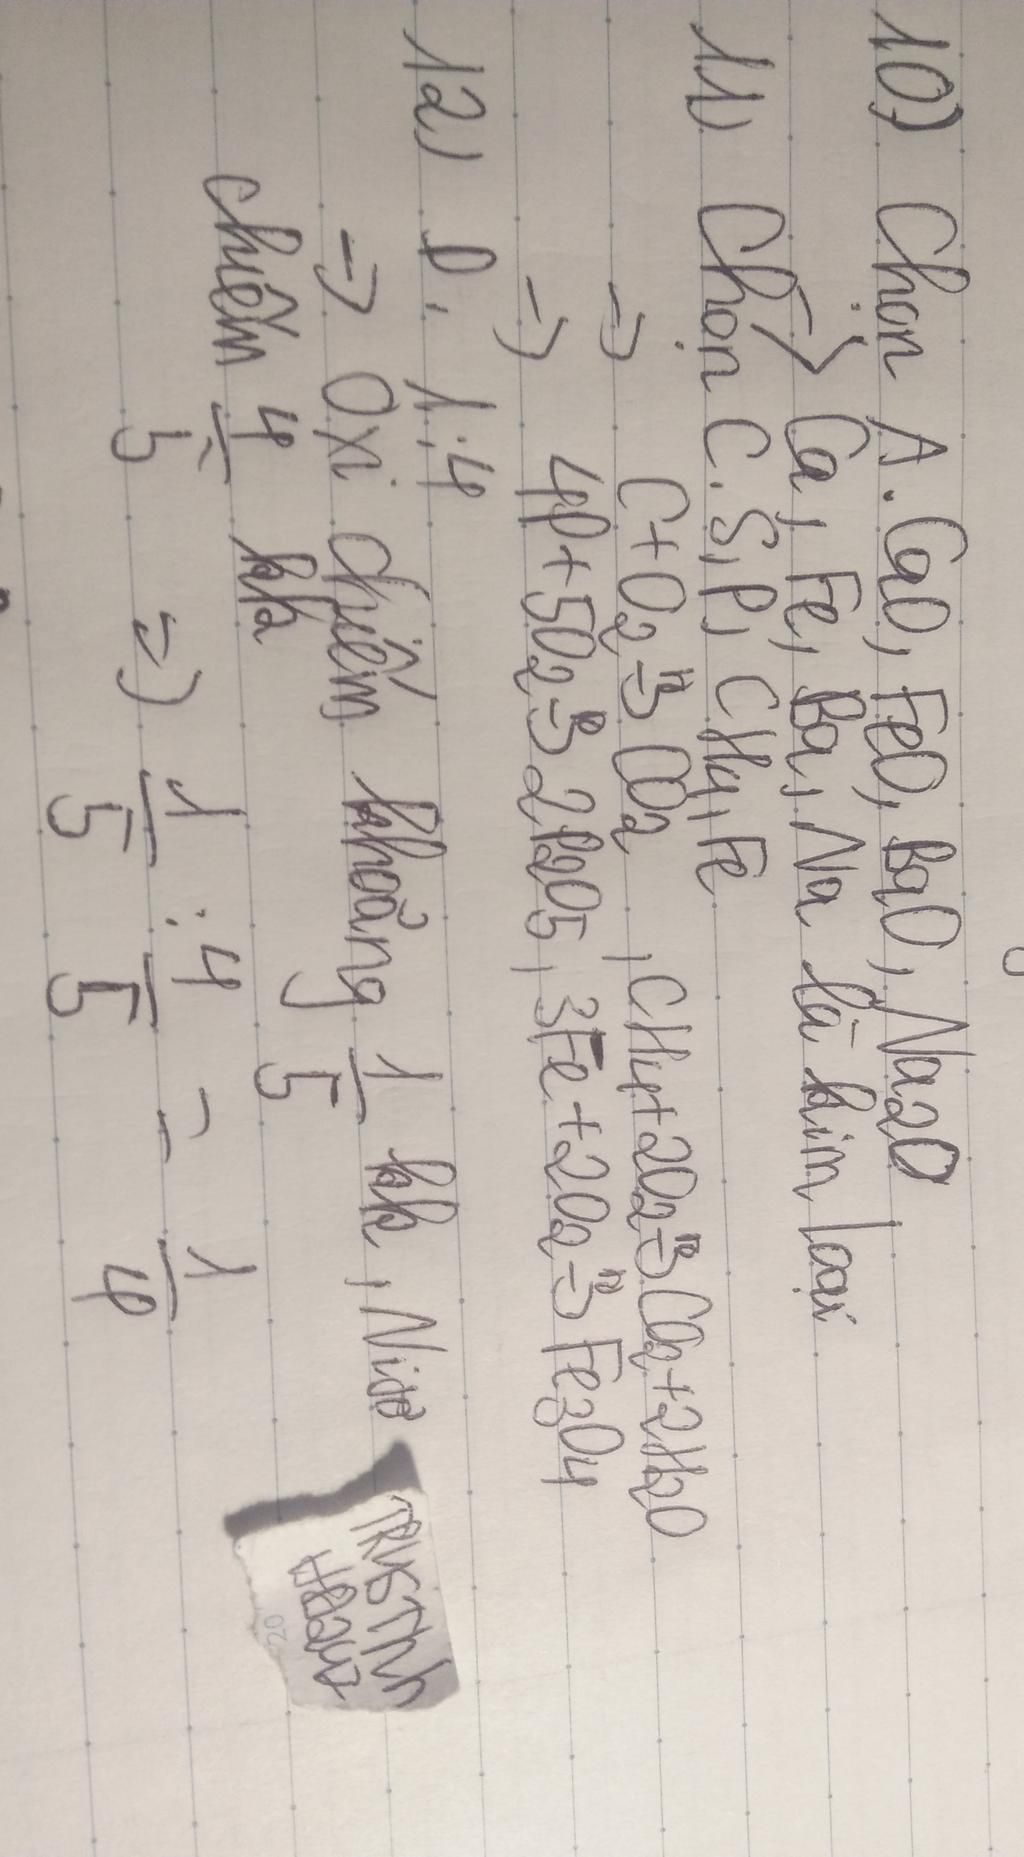 10) Chọn A. CaO, FeO, BaO, Na2O
=> Ca, Fe, Ba, Na là kim loại
11) Chọn C. S, P, CH4, Fe
=> C + O2 -> CO2, CH4 + 2O2 -> CO2 + 2H2O
=> 4P + 5O2 -> 2P2O5, 3Fe + 2O2 -> Fe3O4
12) D. 1:4
=> Oxi chiếm khoảng 1/5 kk, Nitơ
chiếm 4/5 kk
=> 1/5 : 4/5 = 1/4
TRUSTNY